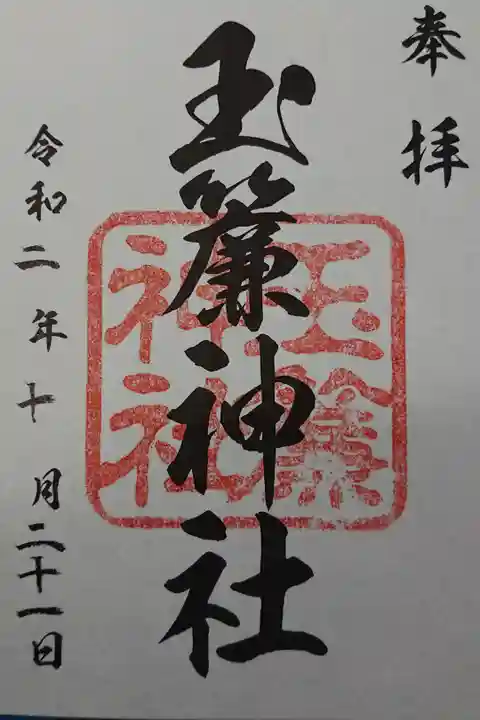 奉拝
玉簾神社
玉簾神社
令和二年十月二十一日